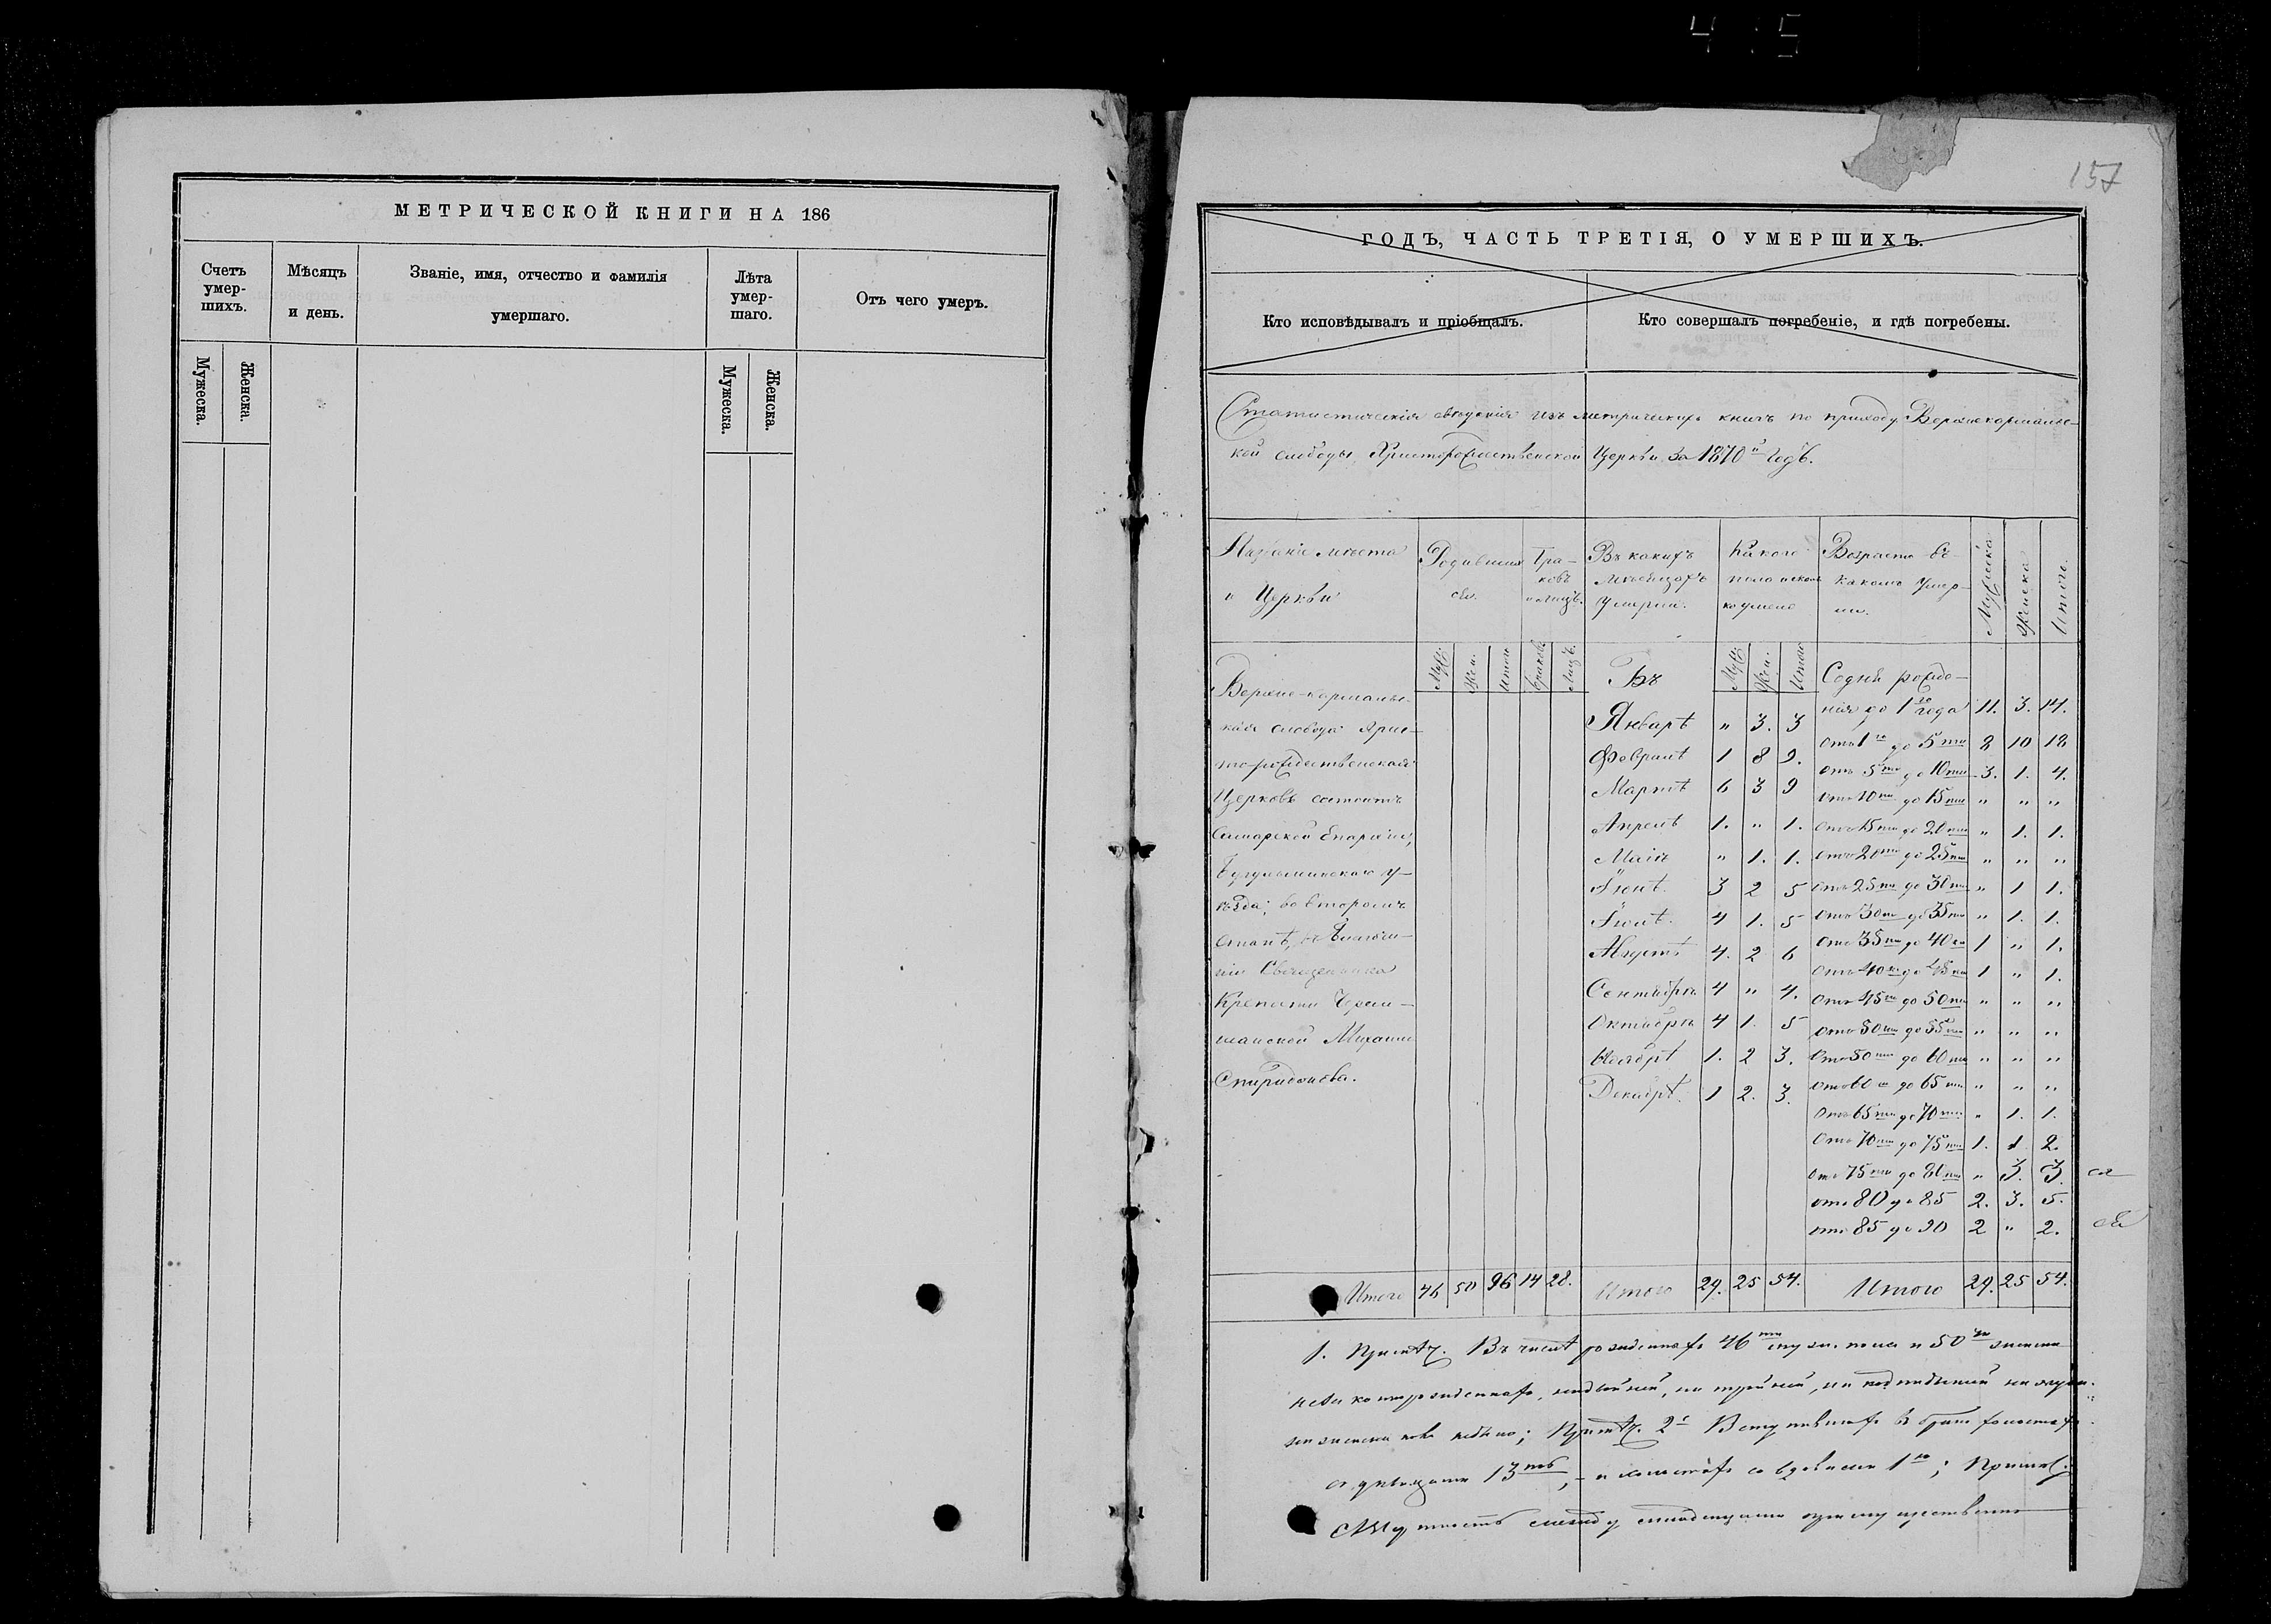 МЕТРИЧЕСКОЙ КНИГИ НА 186
Счетъ умер-шихъ.
Мѣсяцъ и день.
Званіе, имя, отчество и фамилія умершаго.
Лѣта умер-шаго.
Отъ чего умеръ.
Мужеска.
Женска.
Мужеска.
Женска.
157
ГОДЪ, ЧАСТЬ ТРЕТІЯ, О УМЕРШИХЪ.
Кто исповѣдывалъ и пріобщалъ.
Кто совершалъ погребеніе, и гдѣ погребены.
Статистическія свѣденія изъ метрическихъ книгъ по приходу Верхнекармальс-
кой слободы Христорождественской Церкви за 1870й годъ.
Названіе мѣста и Церкви
Родивших ся.
Бра-ковъ
Въ какихъ мѣсяцахъ умерли.
Какого пола
Возрастъ въ какомъ умер-ли.
Мужеска
Женска
Итого.
Муж.
Жен.
Итого
Браковъ
Лицъ.
Въ
Муж.
Жен.
Итого
Верхне-кармальс-
кая слобода Хрис-
торождественская
Церковь состоитъ
Самарской Епархіи,
Бугульминскаго у-
ѣзда; во второмъ
станѣ, въ Благочи-
ніи Священника
Крепости Черем-
шанской Михаила
Спиридонова.
Январѣ " 3. 3
Февралѣ 1 8 9.
Мартѣ 6 3 9
Апрелѣ 1. " 1.
Маіѣ " 1. 1.
Іюнѣ 3 2 5
Іюлѣ 4 1. 5
Августѣ 4. 2 6
Сентябрѣ 4 " 4.
Октябрѣ 4 1. 5
Ноябрѣ 1. 2 3.
Декабрѣ 1 2. 3.
Со дня рожде-
нія до 1го года 11. 3. 14.
отъ 1го до 5ти 8 10 18
отъ 5ти до 10ти 3. 1. 4.
отъ 10ти до 15ти " " "
отъ 15ти до 20ти " 1. 1.
отъ 20ти до 25ти " " "
отъ 25ти до 30ти " 1 1.
отъ 30ти до 35ти " 1. 1.
отъ 35ти до 40ка 1 " 1.
отъ 40ка до 45ти 1 " 1.
отъ 45ти до 50ти " " "
отъ 50ти до 55ти " " "
отъ 50ти до 60ти " " "
отъ 60ти до 65ти " " "
отъ 65ти до 70ти " 1. 1.
отъ 70ти до 75ти 1. 1 2.
отъ 75ти до 80ти " 3. 3.
отъ 80 до 85 2. 3. 5.
отъ 85 до 90 2 " 2.
Итого 46 50 96 14 28.
Итого 29. 25 54.
Итого 29. 25 54.
1. Примѣч. Въ числѣ рожденныхъ 46ти муж. пола и 50ти женска
Примѣч. 2е Вступившихъ въ бракъ холостыхъ
съ дѣвицами 13ть, и холостыхъ со вдовами 1нъ; Примѣч.